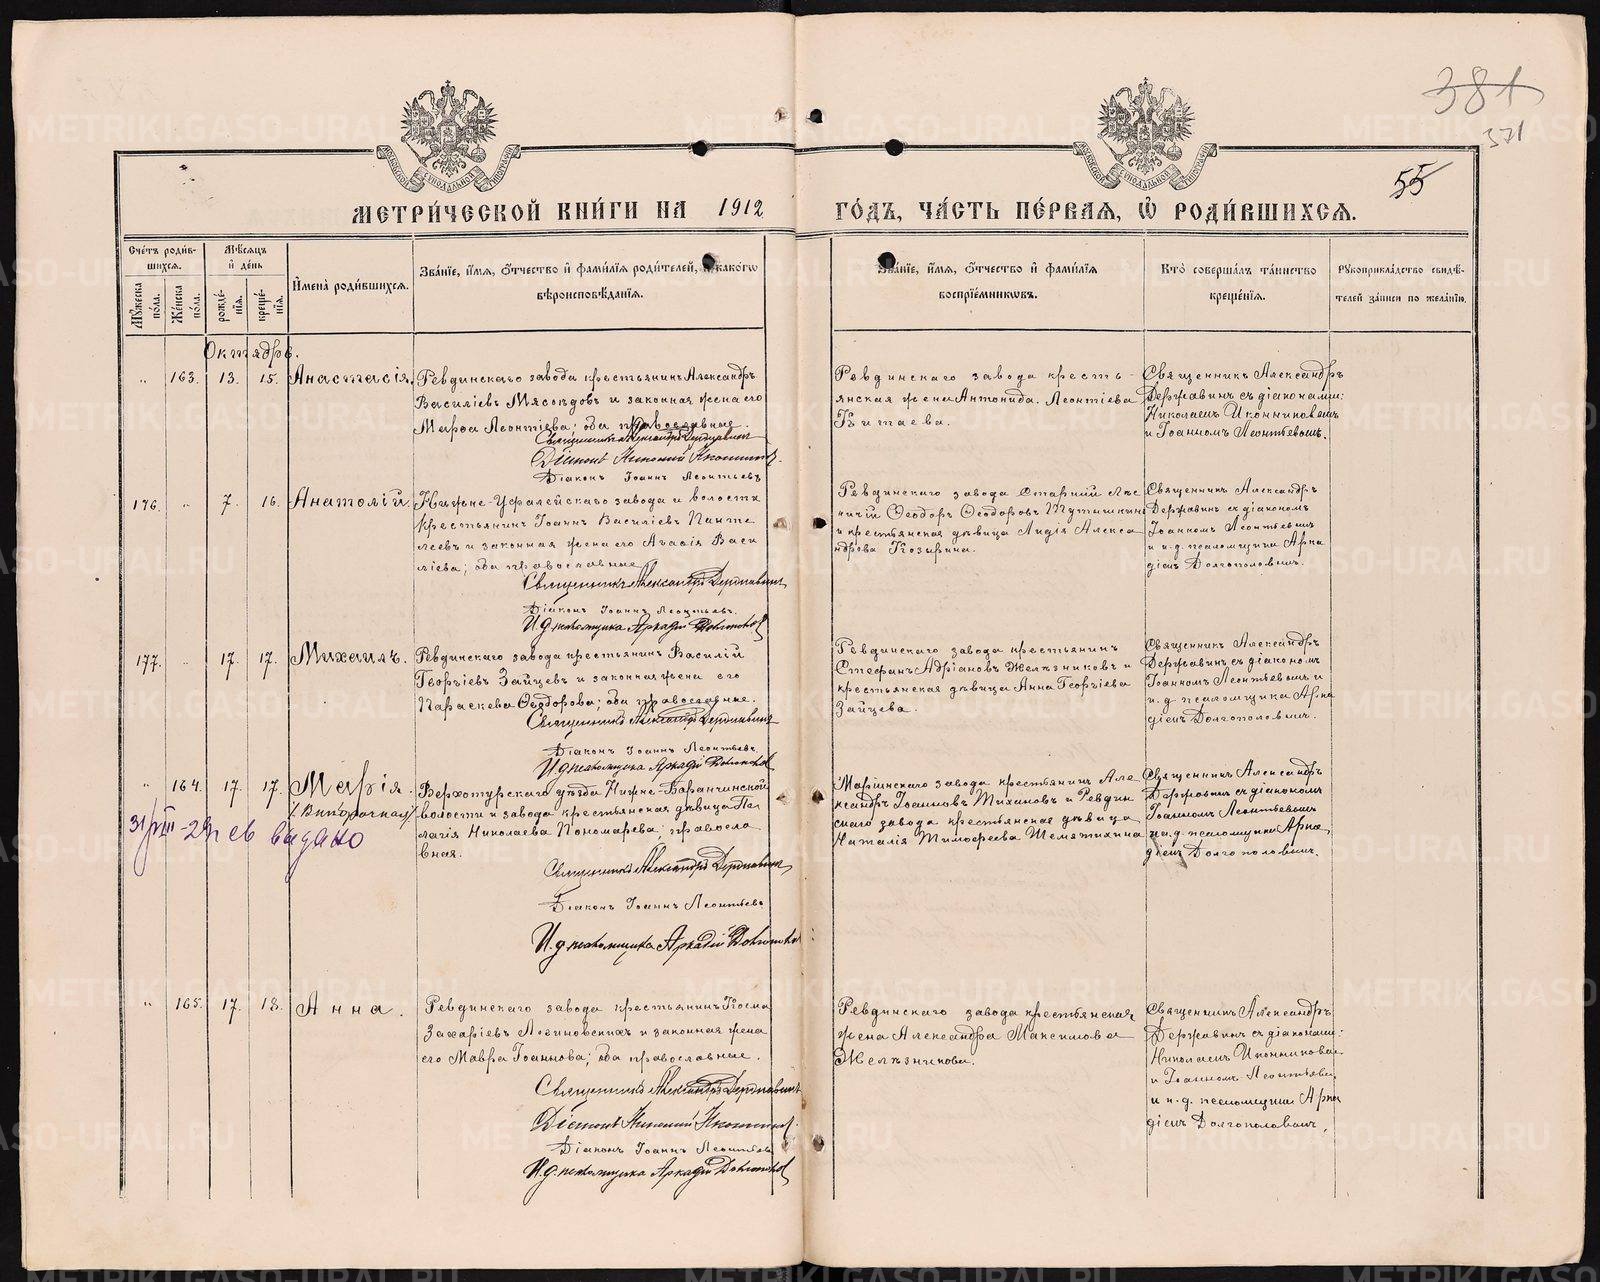 381
371
55
МЕТРИ́ЧЕСКОЙ КНИ́ГИ НА 1912 ГО́ДЪ, ЧА́СТЬ ПЕ́РВАѦ, Ѽ РОДИ́ВШИХСѦ.
Сче́тъ роди́в-
шихсѧ.
Мѣ́сѧцъ
и҆ де́нь
Мꙋ́жеска
по́ла.
Же́нска
по́ла.
рожде́-
нїѧ.
креще́-
нїѧ.
И҆мена̀ роди́вшихсѧ.
Зва́нїе, и҆́мѧ, ѻ҆́тчество и҆ фами́лїѧ роди́телей, и҆ како́гѡ
вѣроисповѣ́данїѧ.
Зва́нїе, и҆́мѧ, ѻ҆́тчество и҆ фами́лїѧ
воспрїе́мникѡвъ.
Кто̀ соверша́лъ та́инство
креще́нїѧ.
Рꙋкоприкла́дство свидѣ́-
телей за́писи по жела́нїю.
Октябрь.
" 163. 13. 15. Анастасія.
Ревдинскаго завода крестьянинъ Александръ
Василіевъ Мясоѣдовъ и законная жена его
Марѳа Леонтіева; оба православные.
Священникъ Александръ Державинъ
Діаконъ Николай Иконниковъ
Діаконъ Іоаннъ Леонтьевъ
Ревдинскаго завода кресть-
янская жена Антонида Леонтіева
Китаева.
Священникъ Александръ
Державинъ съ діаконами:
Николаемъ Иконниковымъ
и Іоанномъ Леонтьевымъ.
176. " 7. 16. Анатолій.
Нижне-Уфалейскаго завода и волости
крестьянинъ Іоаннъ Василіевъ Панте
леевъ и законная жена его Агаѳія Васи
ліева; оба православные
Священникъ Александръ Державинъ
Діаконъ Іоаннъ Леонтьевъ.
И.д. псаломщика Аркадій Долгополовъ
Ревдинскаго завода Старшій Лѣс
ничій Ѳеодоръ Ѳеодоровъ Тутышкинъ
и крестьянская дѣвица Лидія Алекса
ндрова Козырина.
Священникъ Александръ
Державинъ съ діакономъ
Іоанномъ Леонтьевымъ
и и.д. псаломщика Арка
діемъ Долгополовымъ.
177. " 17. 17. Михаилъ.
Ревдинскаго завода крестьянинъ Василій
Георгіевъ Зайцевъ и законная жена его
Параскева Ѳеодорова; оба православные.
Священникъ Александръ Державинъ
Діаконъ Іоаннъ Леонтьевъ.
И.д. псаломщика Аркадій Долгополовъ
Ревдинскаго завода крестьянинъ
Стефанъ Адріановъ Желѣзниковъ и
крестьянская дѣвица Анна Георгіева
Зайцева.
Священникъ Александръ
Державинъ съ діакономъ
Іоанномъ Леонтьевымъ и
и.д. псаломщика Арка
діемъ Долгополовымъ.
" 164. 17. 17. Марія.
(Внѣбрачная)
31/VIII-29 г св выдано
Верхотурскаго уѣзда Нижне-Баранчинской
волости и завода крестьянская дѣвица Пе
лагія Николаева Пономарева; правосла
вная.
Священникъ Александръ Державинъ
Діаконъ Іоаннъ Леонтьевъ
И.д. псаломщика Аркадій Долгополовъ
Маріинскаго завода крестьянинъ Але
ксандръ Іоанновъ Тихановъ и Ревдин
скаго завода крестьянская дѣвица
Наталія Тимоѳеева Шемятихина
Священникъ Александръ
Державинъ съ діакономъ
Іоанномъ Леонтьевымъ
и и.д. псаломщика Арка
діемъ Долгополовымъ.
" 165. 17. 18. Анна.
Ревдинскаго завода крестьянинъ Косма
Захаріевъ Логиновскихъ и законная жена
его Мавра Іоаннова; оба православные.
Священникъ Александръ Державинъ
Діаконъ Николай Иконниковъ.
Діаконъ Іоаннъ Леонтьевъ
И.д. псаломщика Аркадій Долгополовъ
Ревдинскаго завода крестьянская
жена Александра Максимова
Желѣзникова.
Священникъ Александръ
Державинъ съ діаконами:
Николаемъ Иконниковы
и Іоанномъ Леонтьевы
и и.д. псаломщика Арка
діемъ Долгополовымъ.
METRIKI.GASO-URAL.RU